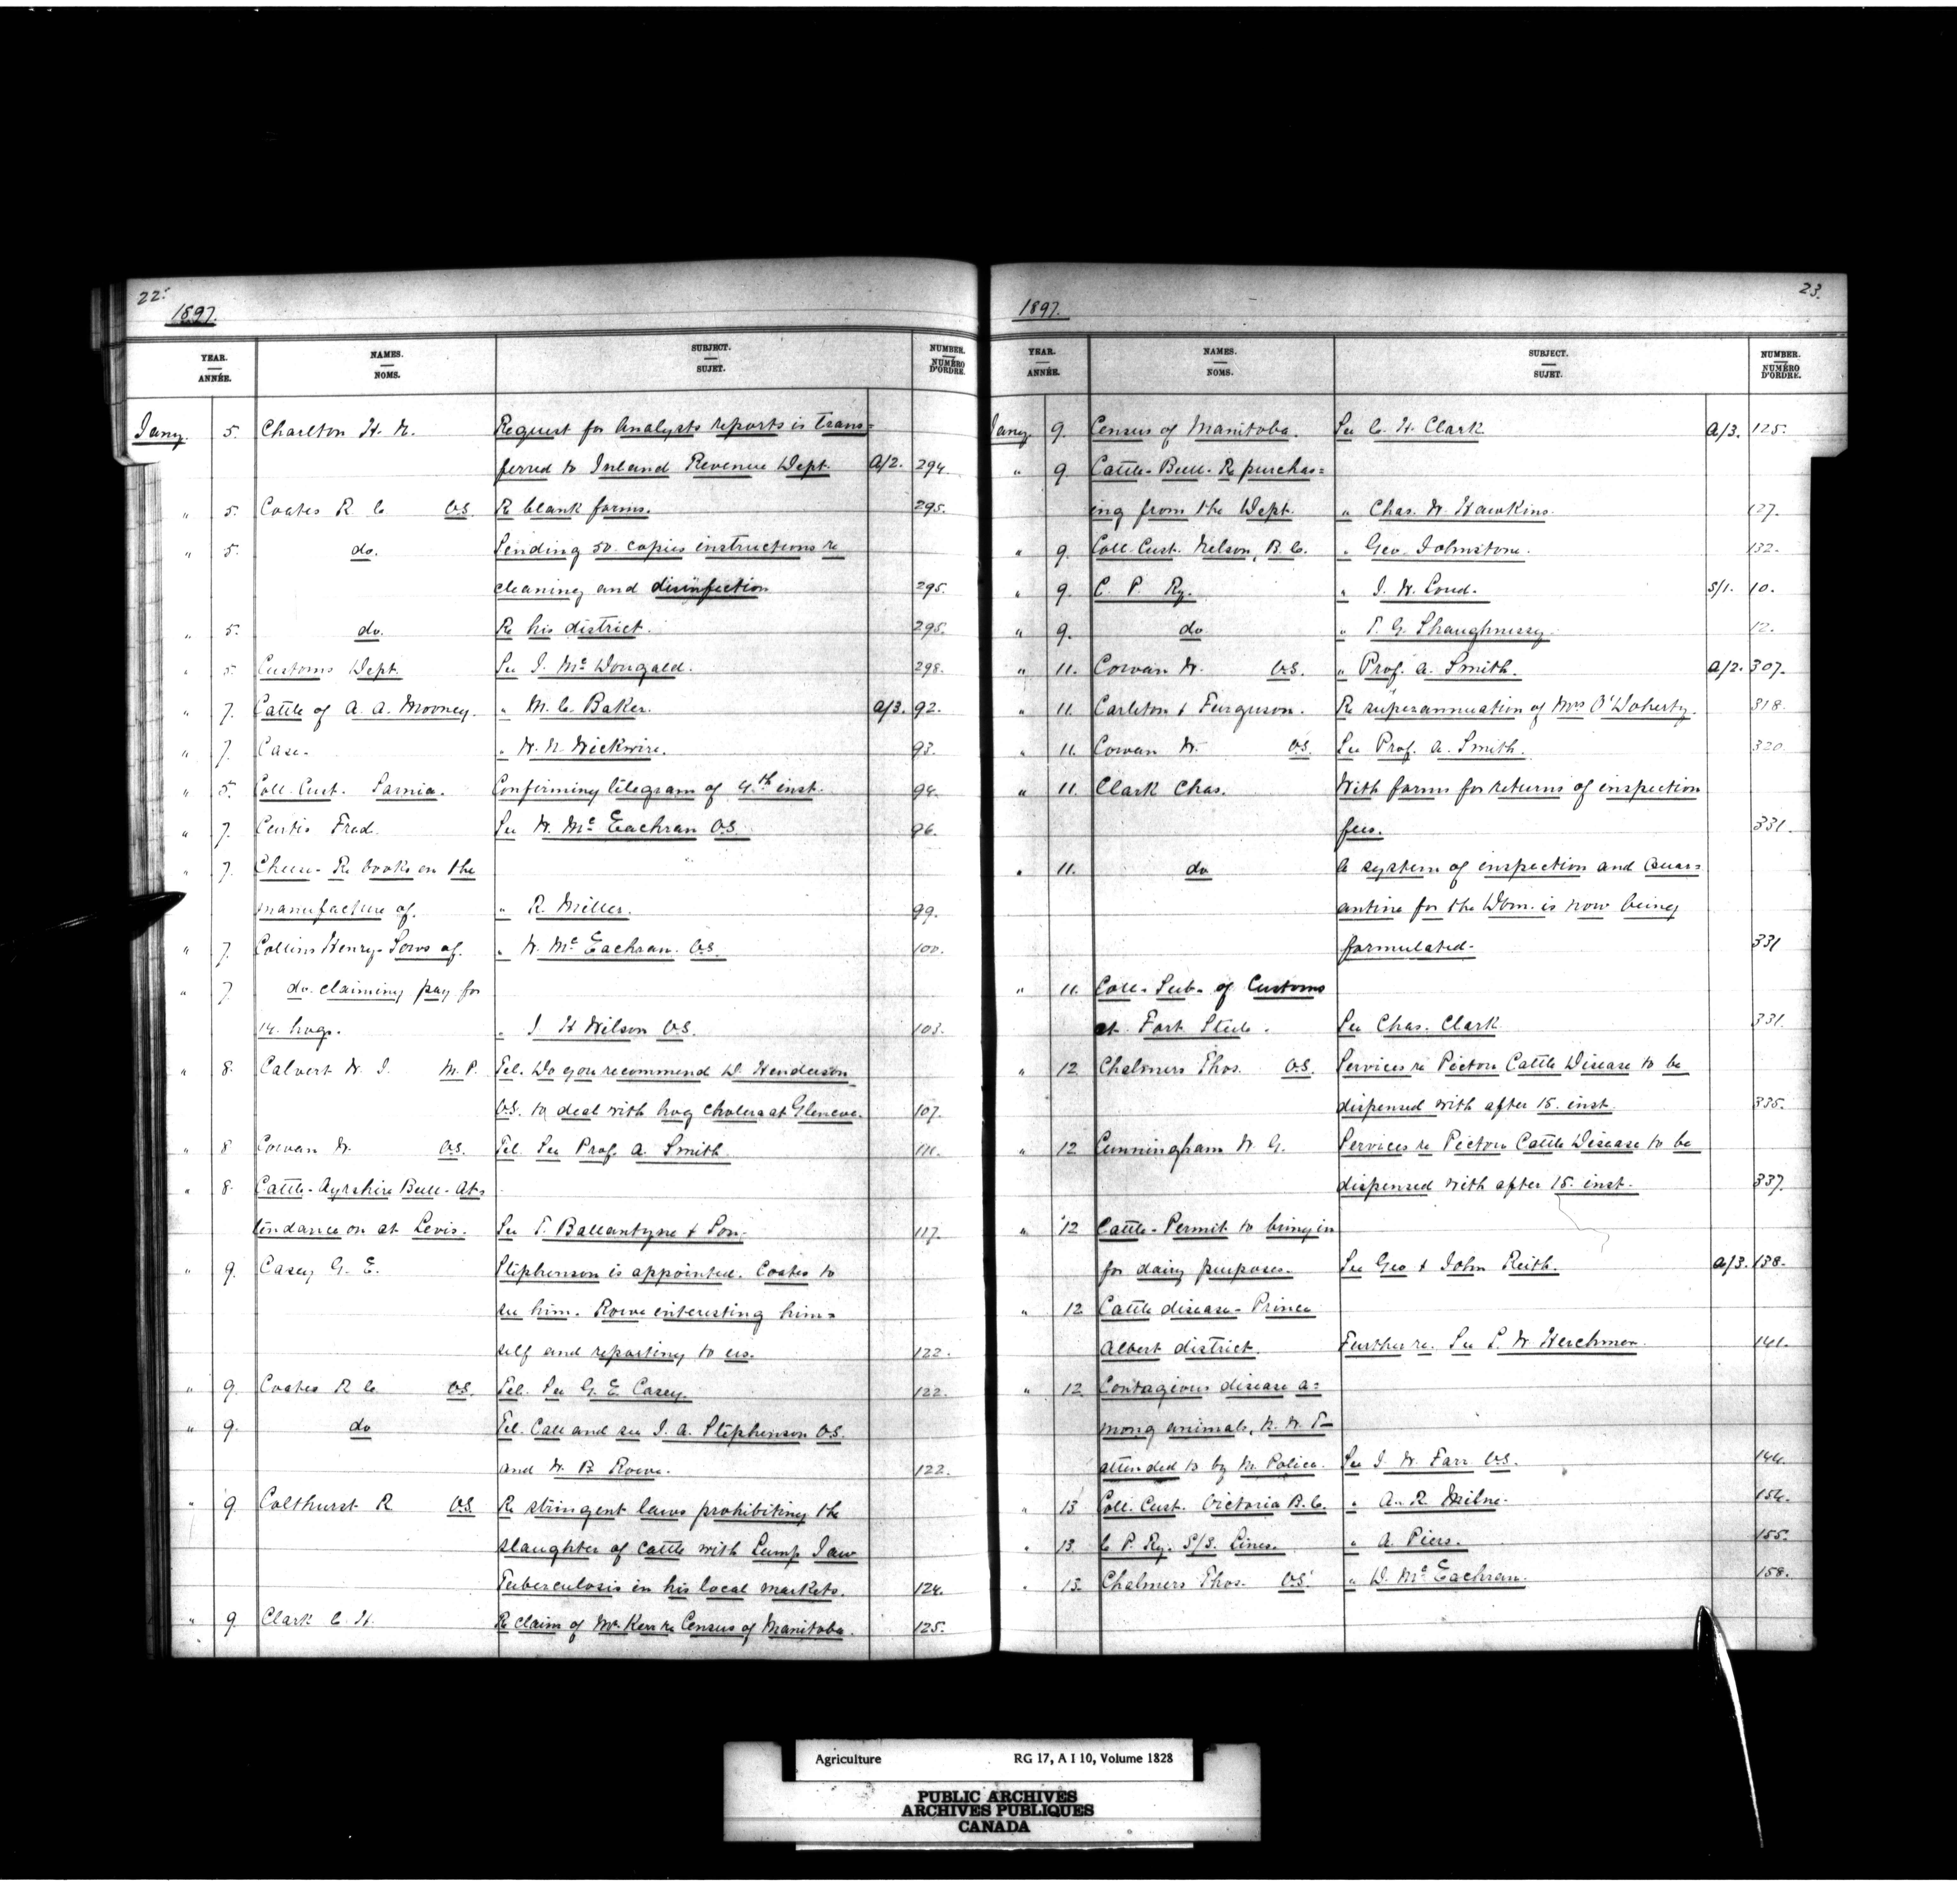 22.
1897.
YEAR. ANNÉE. NAMES. NOMS. SUBJECT. SUJET. NUMBER. NUMÉRO D'ORDRE.
Jany. 5. Charlton H. N. Request for Analysts reports is trans=
ferred to Inland Revenue Dept. A/2. 294.
" 5. Coates R C V.S. Re blank forms. 295.
" 5. do. Sending 50 copies instructions re
cleaning and disinfection 295.
" 5. do. Re his district. 295.
" 5. Customs Dept. See J. McDougald. 298.
" 7. Cattle of A. A. Mooney. " M. C. Baker. A/3. 92.
" 7. Case. " W. N. Wickwire. 93.
" 5. Coll. Cust. Sarnia. Confirming telegram of 4th inst. 94.
" 7. Curtis Fred. See D. McEachran V.S. 96.
" 7. Cheese - Re books on the
manufacture of. " R. Miller. 99.
" 7. Collins Henry - Sows of. " D. McEachran. V.S. 100.
" 7. do. claiming pay for
14. hogs. " J H Wilson V.S. 103.
" 8. Calvert W. S. M.P. Tel. Do you recommend D. Henderson
V.S. to deal with hog cholera at Glencoe. 107.
" 8 Cowan W. V.S. Tel. See Prof. A. Smith. 111.
" 8. Cattle - Ayrshire Bull - At=
tendance on at Levis. See T. Ballantyne & Son. 117.
" 9. Casey G. E. Stephenson is appointed. Coates to
see him. Rowe interesting him=
self and reporting to us. 122.
" 9. Coates R C. V.S. Tel. See G. E. Casey. 122.
" 9. do Tel. Call and see J. A. Stephenson V.S.
and W. B. Rowe. 122.
" 9. Colthurst R V.S. Re stringent laws prohibiting the
slaughter of cattle with Lump Jaw
Tuberculosis in his local markets. 124.
" 9. Clark C. H. Re claim of Mr. Kerr re Census of Manitoba. 125.
23.
1897.
YEAR. ANNÉE. NAMES. NOMS. SUBJECT. SUJET. NUMBER. NUMÉRO D'ORDRE.
Jany 9. Census of Manitoba. See C. H. Clark A/3. 125.
" 9. Cattle - Bull - Re purchas=
ing from the Dept. " Chas. W. Hawkins. 127.
" 9. Coll. Cust. Nelson, B.C. " Geo. Johnstone. 132.
" 9. C. P. Ry. " J. W. Loud. S/1. 10.
" 9. do " T. G. Shaughnessy. 12.
" 11. Cowan W. V.S. " Prof. A. Smith. A/2. 307.
" 11. Carleton & Ferguson. Re superannuation of Mrs O'Doherty. 318.
" 11. Cowan W. V.S. See Prof. A. Smith. 320.
" 11. Clark Chas. With forms for returns of inspection
fees. 331.
" 11. do A system of inspection and Quar=
antine for the Dom. is now being
formulated. 331
" 11. Coll. Sub. of Customs
at Fort Steele. See Chas. Clark 331.
" 12 Chalmers Thos. V.S. Services re Pictou Cattle Disease to be
dispensed with after 15. inst. 335.
" 12 Cunningham W. G. Services re Pictou Cattle Disease to be
dispensed with after 15. inst. 337.
" 12 Cattle - Permit to bring in
for dairy purposes. See Geo & John Reith. A/3. 138.
" 12 Cattle disease - Prince
Albert district. Further re. See L. W. Herchmer. 141.
" 12 Contagious disease a=
mong animals, N. W. T.
attended to by M. Police. See J. W. Farr V.S. 144.
" 13 Coll. Cust. Victoria B.C. " A. R. Milne. 154.
" 13. C P. Ry. S/S. Lines. " A. Piers. 155.
" 13. Chalmers Thos. V.S. " D. McEachran. 158.
Agriculture RG 17, A I 10, Volume 1828
PUBLIC ARCHIVES
ARCHIVES PUBLIQUES
CANADA